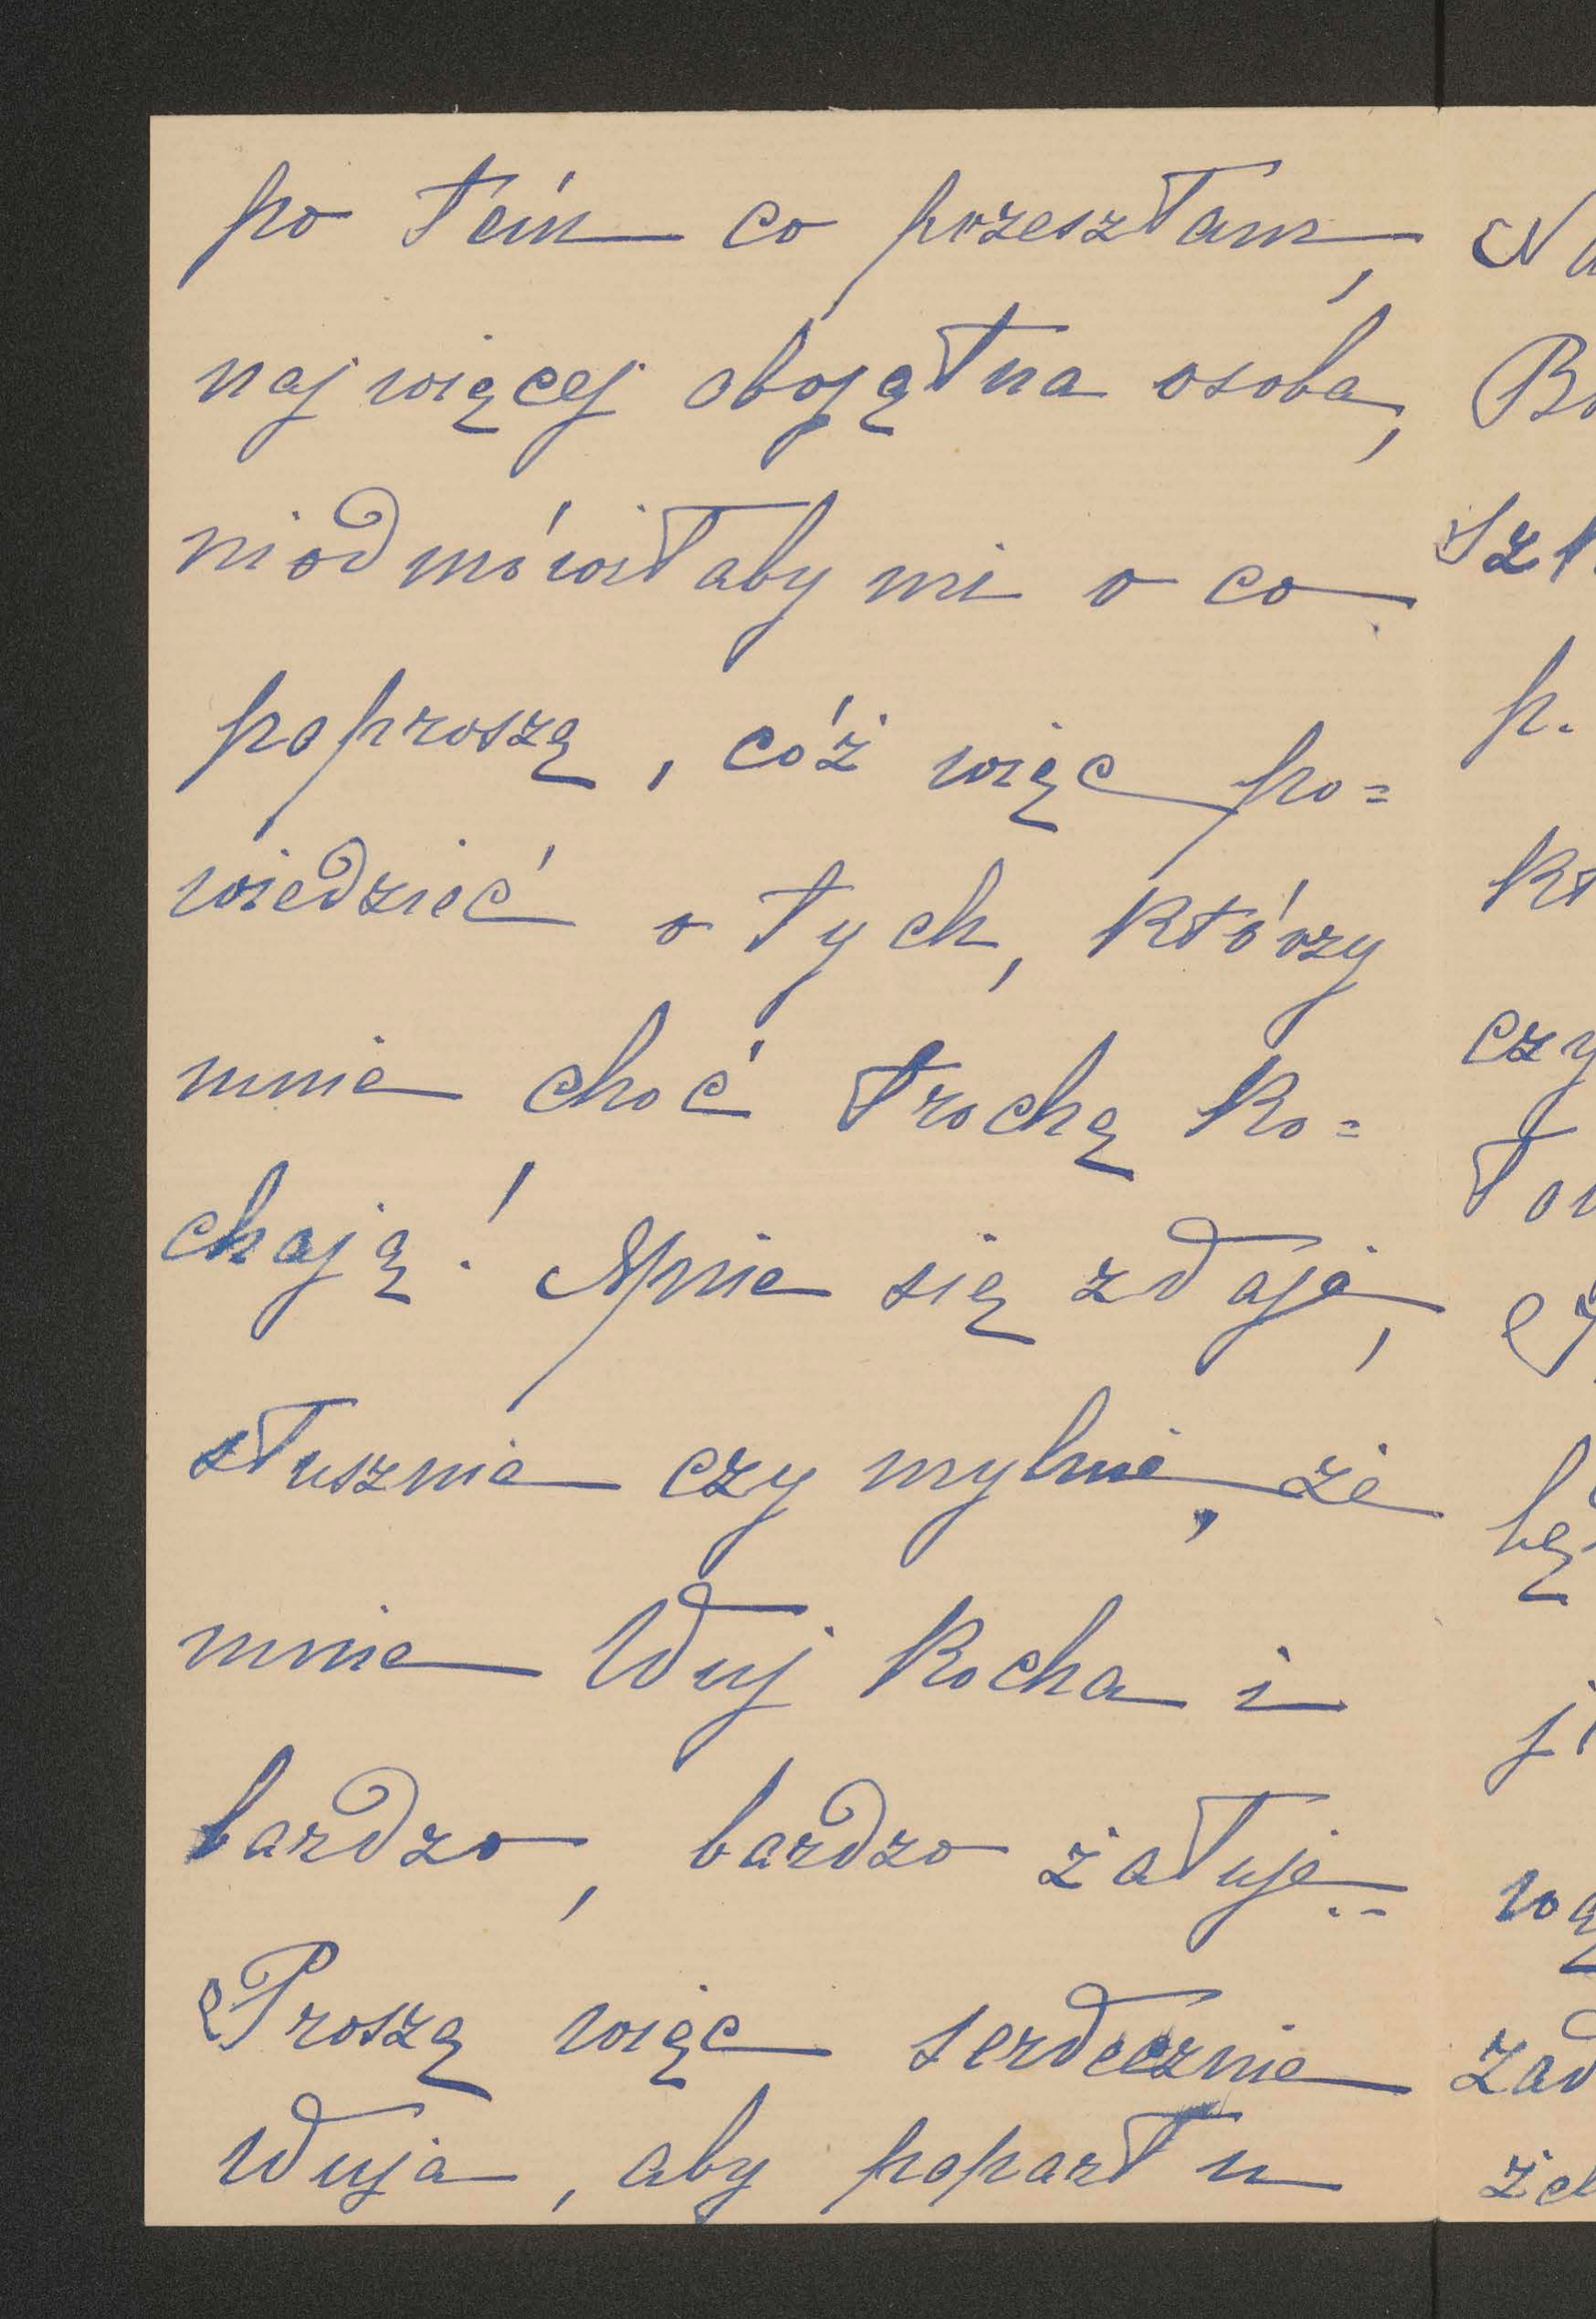 po tém co przeszłam,
najwięcej obojętna osoba,
niodmówiłaby mi o co
poproszę, cóż więc po=
wiedzieć o tych, którzy
mnie choć trochę ko=
chają! Mnie się zdaje,
słusznie czy mylnie, że
mnie Wuj kocha i
bardzo, bardzo żałuje..
Proszę więc serdecznie
Wuja, aby poparł u